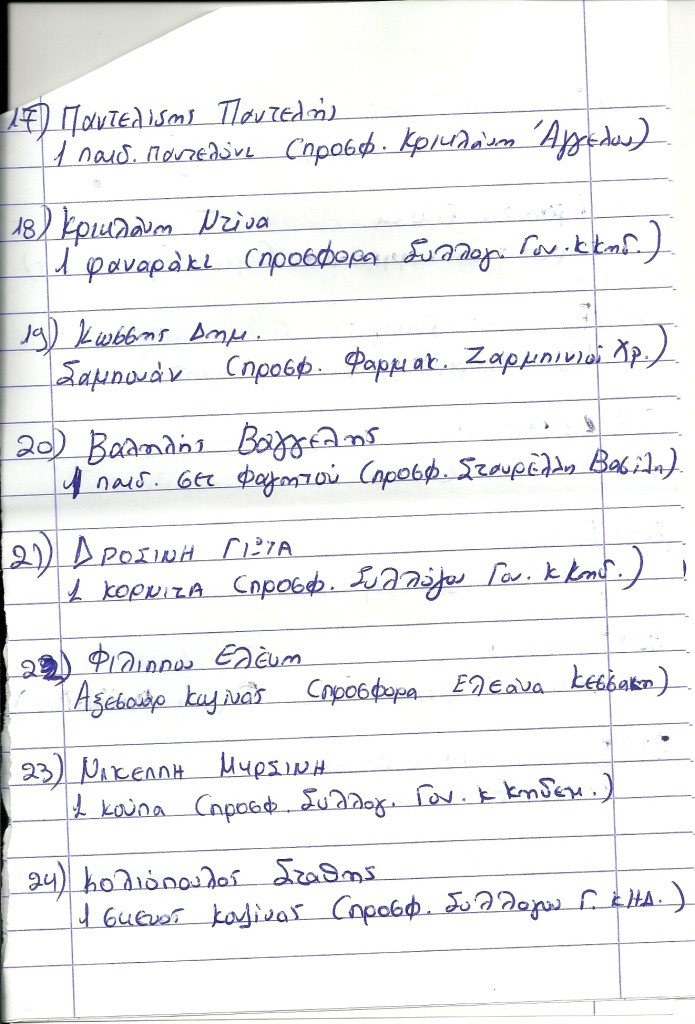 17) Παντελίσης Παντελής
1 παιδ. παντελόνι (προσφ. Κρικλάνη Άγγελου)
18) Κρικλάνη Ντίνα
1 φαναράκι (προσφορα Συλλογ. Γον. κ Κηδ.)
19) Κωσσης Δημ.
Σαμπουάν (προσφ. Φαρμακ. Ζαρμπινιοί Χρ.)
20) Βαληλής Βαγγέλης
1 παιδ. σετ φαγητού (προσφ. Σταυρέλλη Βασίλη)
21) ΔΡΟΣΙΝΗ ΓΙΩΤΑ
1 ΚΟΡΝΙΖΑ (προσφ. Συλλόγου Γον. κ Κηδ.)
22) Φιλιππου Ελένη
Αξεσουάρ κουζίνας (προσφορα Ελεάνα Κεσσάκη)
23) ΝΙΚΕΛΛΗ ΜΥΡΣΙΝΗ
1 κούπα (προσφ. Συλλογ. Γον. κ Κηδεμ.)
24) Κολιόπουλος Σταθης
1 σκευος κουζίνας (προσφ. Συλλογου Γ. κ ΗΔ.)